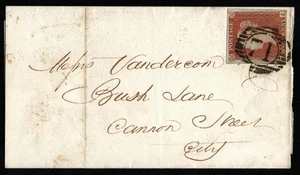 Messrs Vandercom
Bush Lane
Cannon Street
City